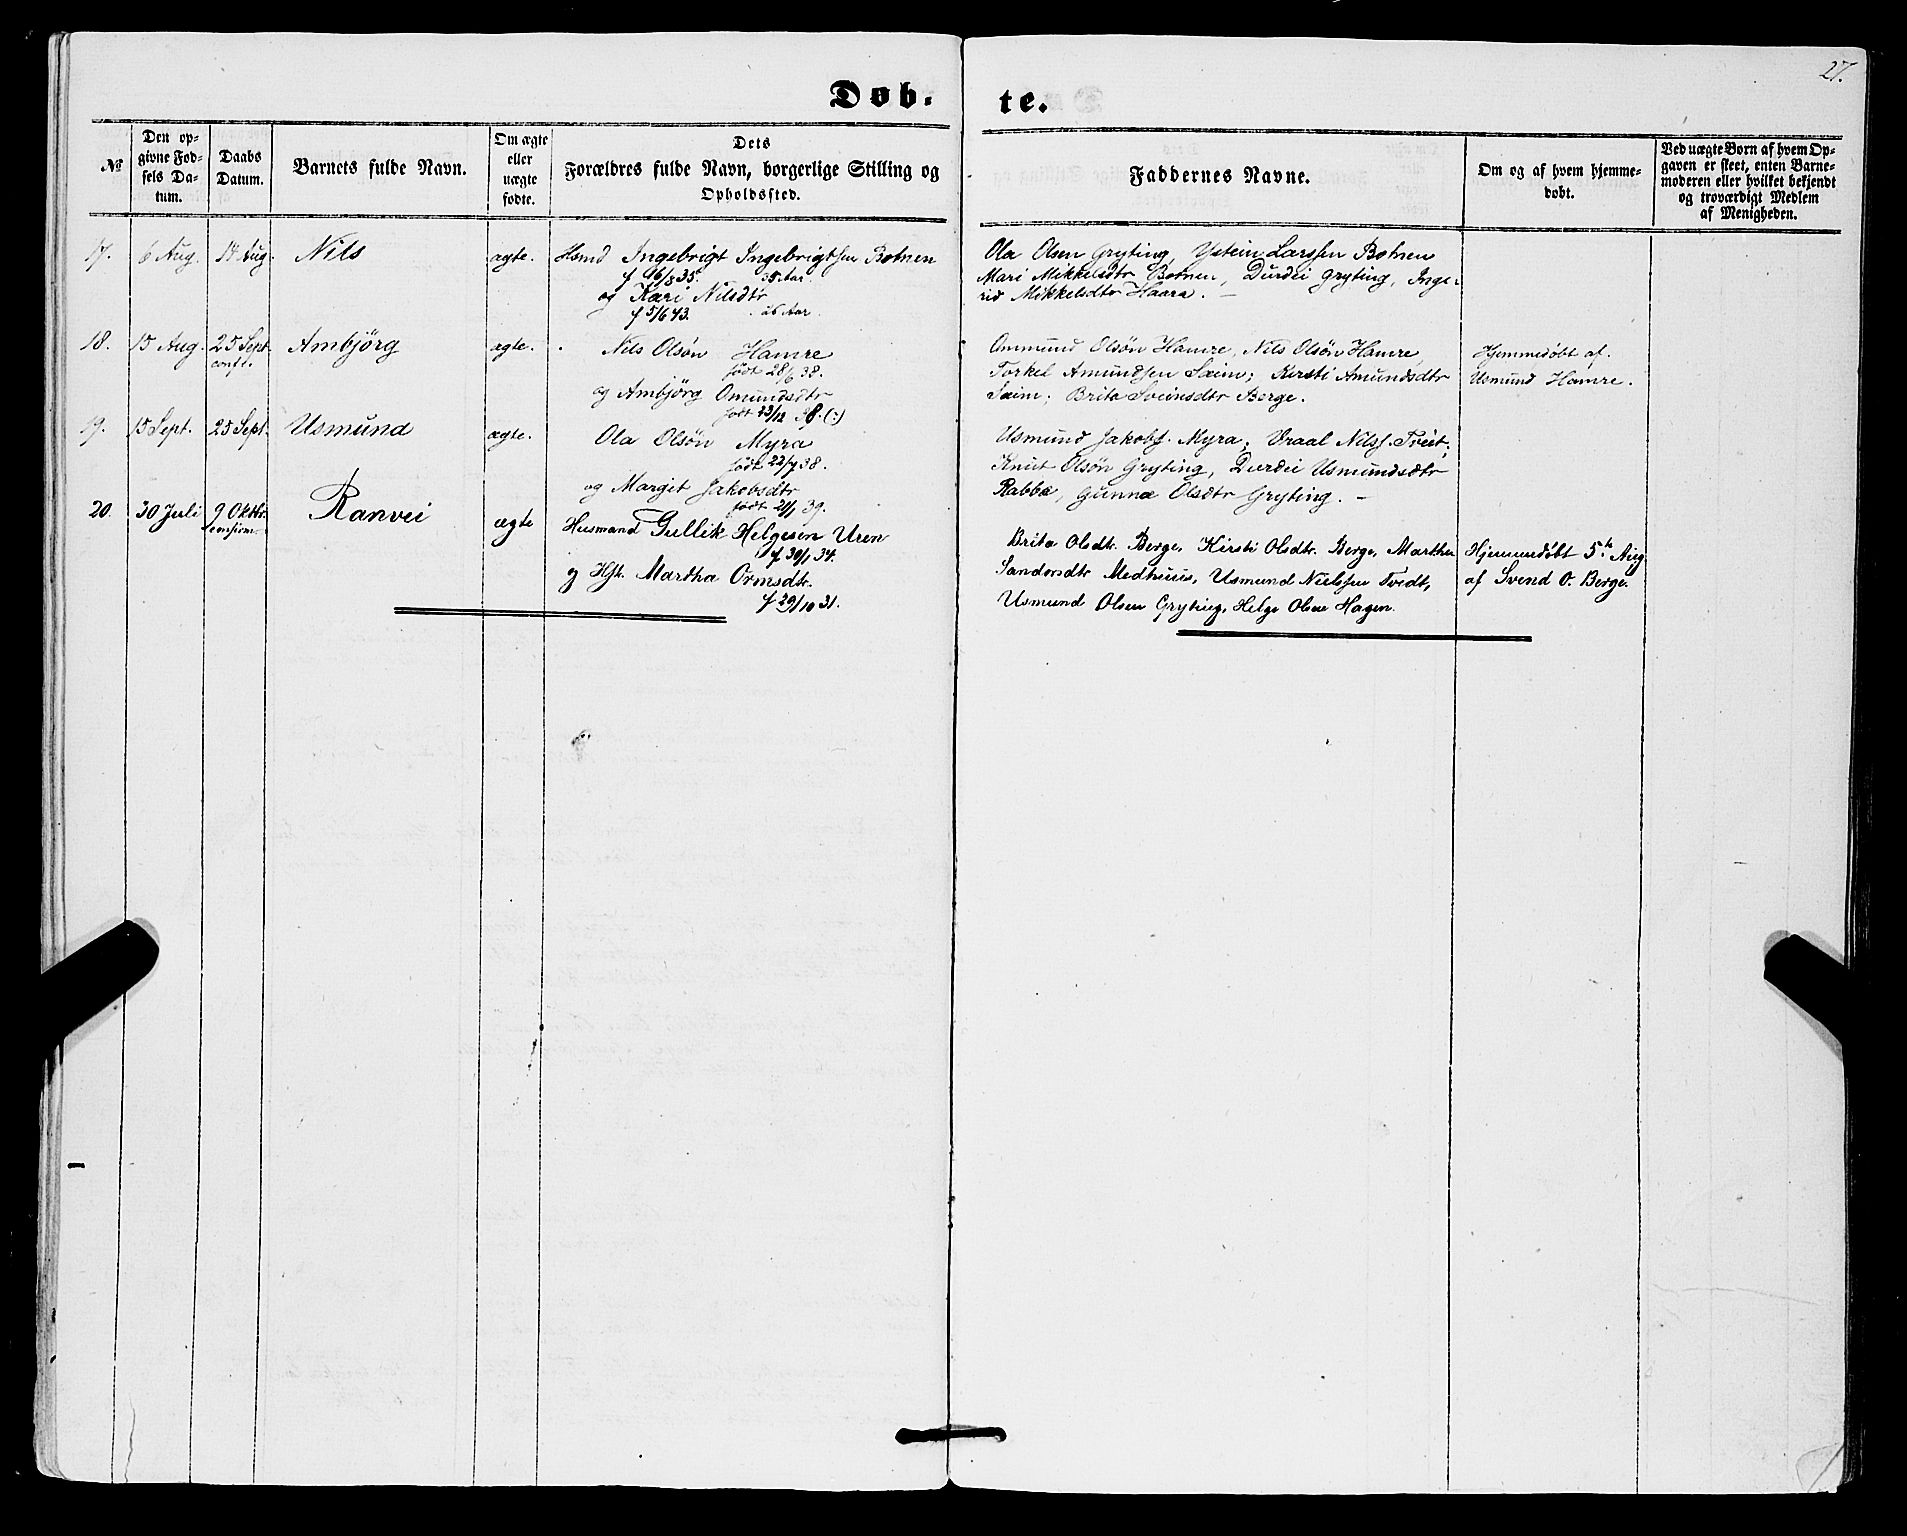 27.
Døb. te.
No
Den op-
givne Fød-
sels Da-
tum.
Daabs
Datum.
Barnets fulde Navn.
Om ægte
eller
uægte
fødte.
Dets
Forældres fulde Navn, borgerlige Stilling og
Opholdssted.
Faddernes Navne.
Om og af hvem hjemme-
døbt.
Ved uægte Børn af hvem Op-
gaven er skeet, enten Barne-
moderen eller hvilket bekjendt
og troværdigt Medlem
af Menigheden.
17. 6 Aug. 14 Aug. Nils ægte. Hsmd Ingebrigt Ingebrigtsen Botnen
35 Aar
og Kari Nilsdtr
f 5/6 43. 26 Aar.
Ola Olsen Gryting, Ystein Larssen Botnen
Mari Mikkelsdtr Botnen, Durdei Gryting, Inge-
rid Mikkelsdtr Haara. –
18. 15 Aug. 25 Sept. Ambjörg ægte. Nils Olsön Hamre
conft.
født 28/6 38.
og Ambjörg Omundsdtr
født 23/12 38. (:)
Ommund Olsön Hamre, Nils Olsön Hamre,
Torkel Amundsen Saim; Kirsti Amundsdtr
Saim; Brita Sveinsdtr Berge.
Hjemmedøbt af.
Usmund Hamre.
19. 15 Sept. 25 Sept. Usmund ægte. Ola Olsön Myra
født 22/7 38.
og Margit Jakobsdtr
født 21/1 39.
Usmund Jakobs. Myra; Vraal Nilss. Tveit;
Knut Olsön Gryting, Durdei Usmundsdtr
Rabba, Gunna Olsdtr Gryting. –
20. 30 Juli 9 Oktbr. Ranvei ægte Husmand Gullik Helgesen Uren
confirm.
f 30/1 34.
og Hst. Martha Ormsdtr.
f 29/10 31.
Brita Olsdtr. Berge, Kirsti Olsdtr. Berge, Martha
Sandersdtr Medhuus, Usmund Nielssen Tvedt,
Usmund Olsen Gryting, Helge Olsen Hagen.
Hjemmedøbt 5te Aug
af Svend O. Berge.